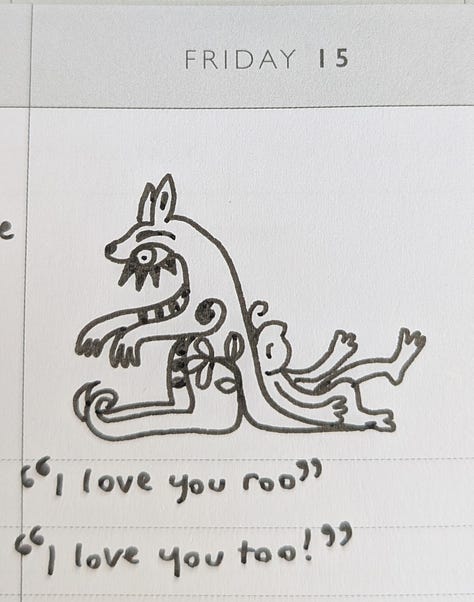 FRIDAY 15
e
“I love you roo”
“I love you too!”